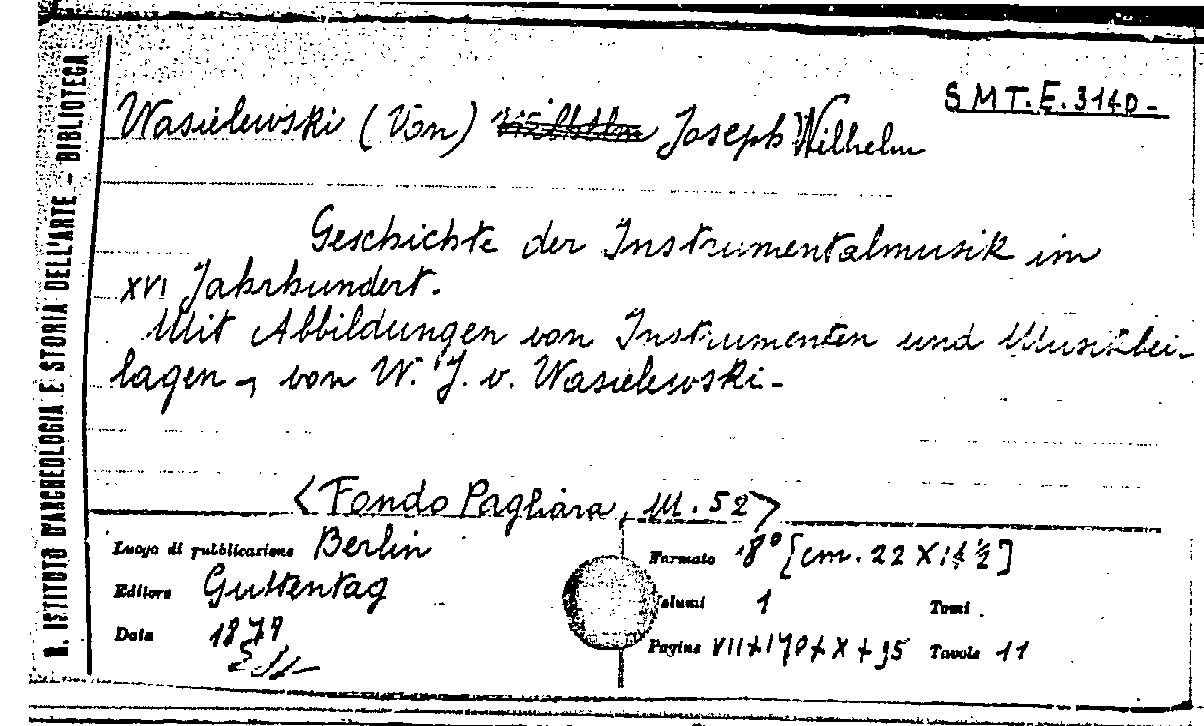 R. ISTITUTO D'ARCHEOLOGIA E STORIA DELL'ARTE - BIBLIOTECA
SMT.E.3140-
Wasielewski (Von) Joseph Wilhelm
Geschichte der Instrumentalmusik im
XVI Jahrhundert.
Mit Abbildungen von Instrumenten und Musikbei-
lagen -, von W. J. v. Wasielewski -
<Fondo Pagliara, M. 52>
Luogo di pubblicazione Berlin
Formato 8° [cm. 22 X
Editore Guttentag
Volumi 1 Tomi
Data 1878
Pagine VII+170+X+95 Tavole 11